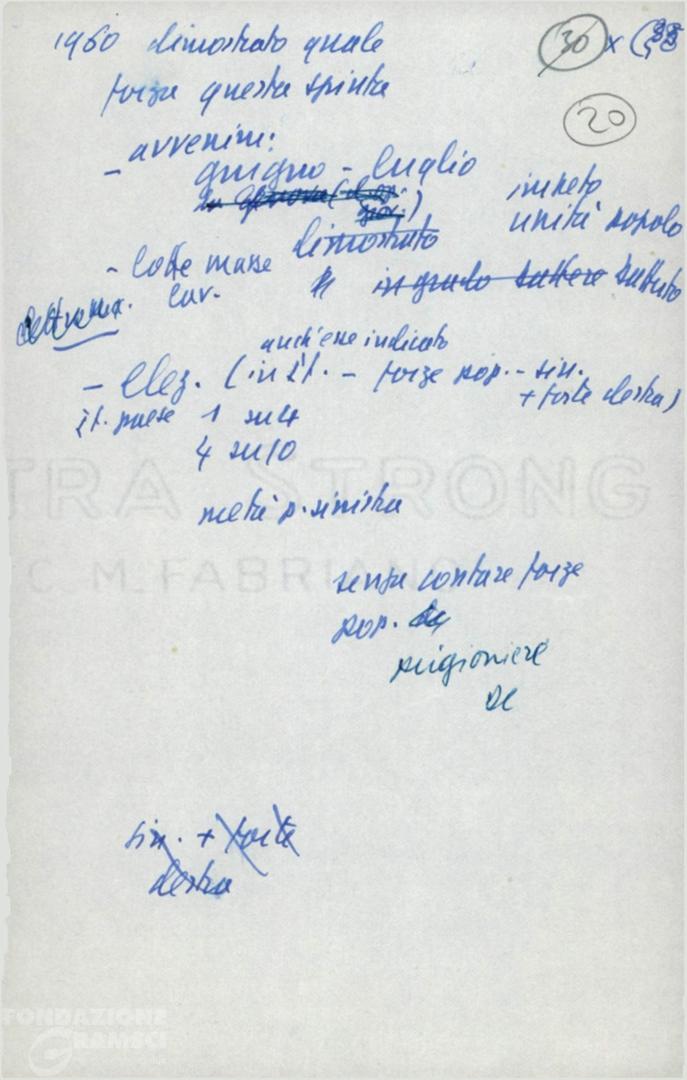 1960 dimostrato quale
30 x (
forza questa spinta
20
- avvenim:
giugno - luglio
in Genova (
impeto
unità popolo
- lotte masse dimostrato
lav.
in grado battere battuto
anch'esse indicato
- elez. (in it. - forze pop. - sin.
+ forte destra)
it. paese 1 su 4
4 su 10
metà p. sinistra
senza contare forze
pop.
prigioniere
DC
sin. + forte
destra
TRA STRONG
C. M. FABRIANO
FONDAZIONE
GRAMSCI